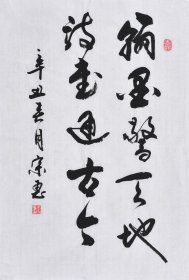 翰墨惊天地
诗书通古今
辛丑春月宗惠